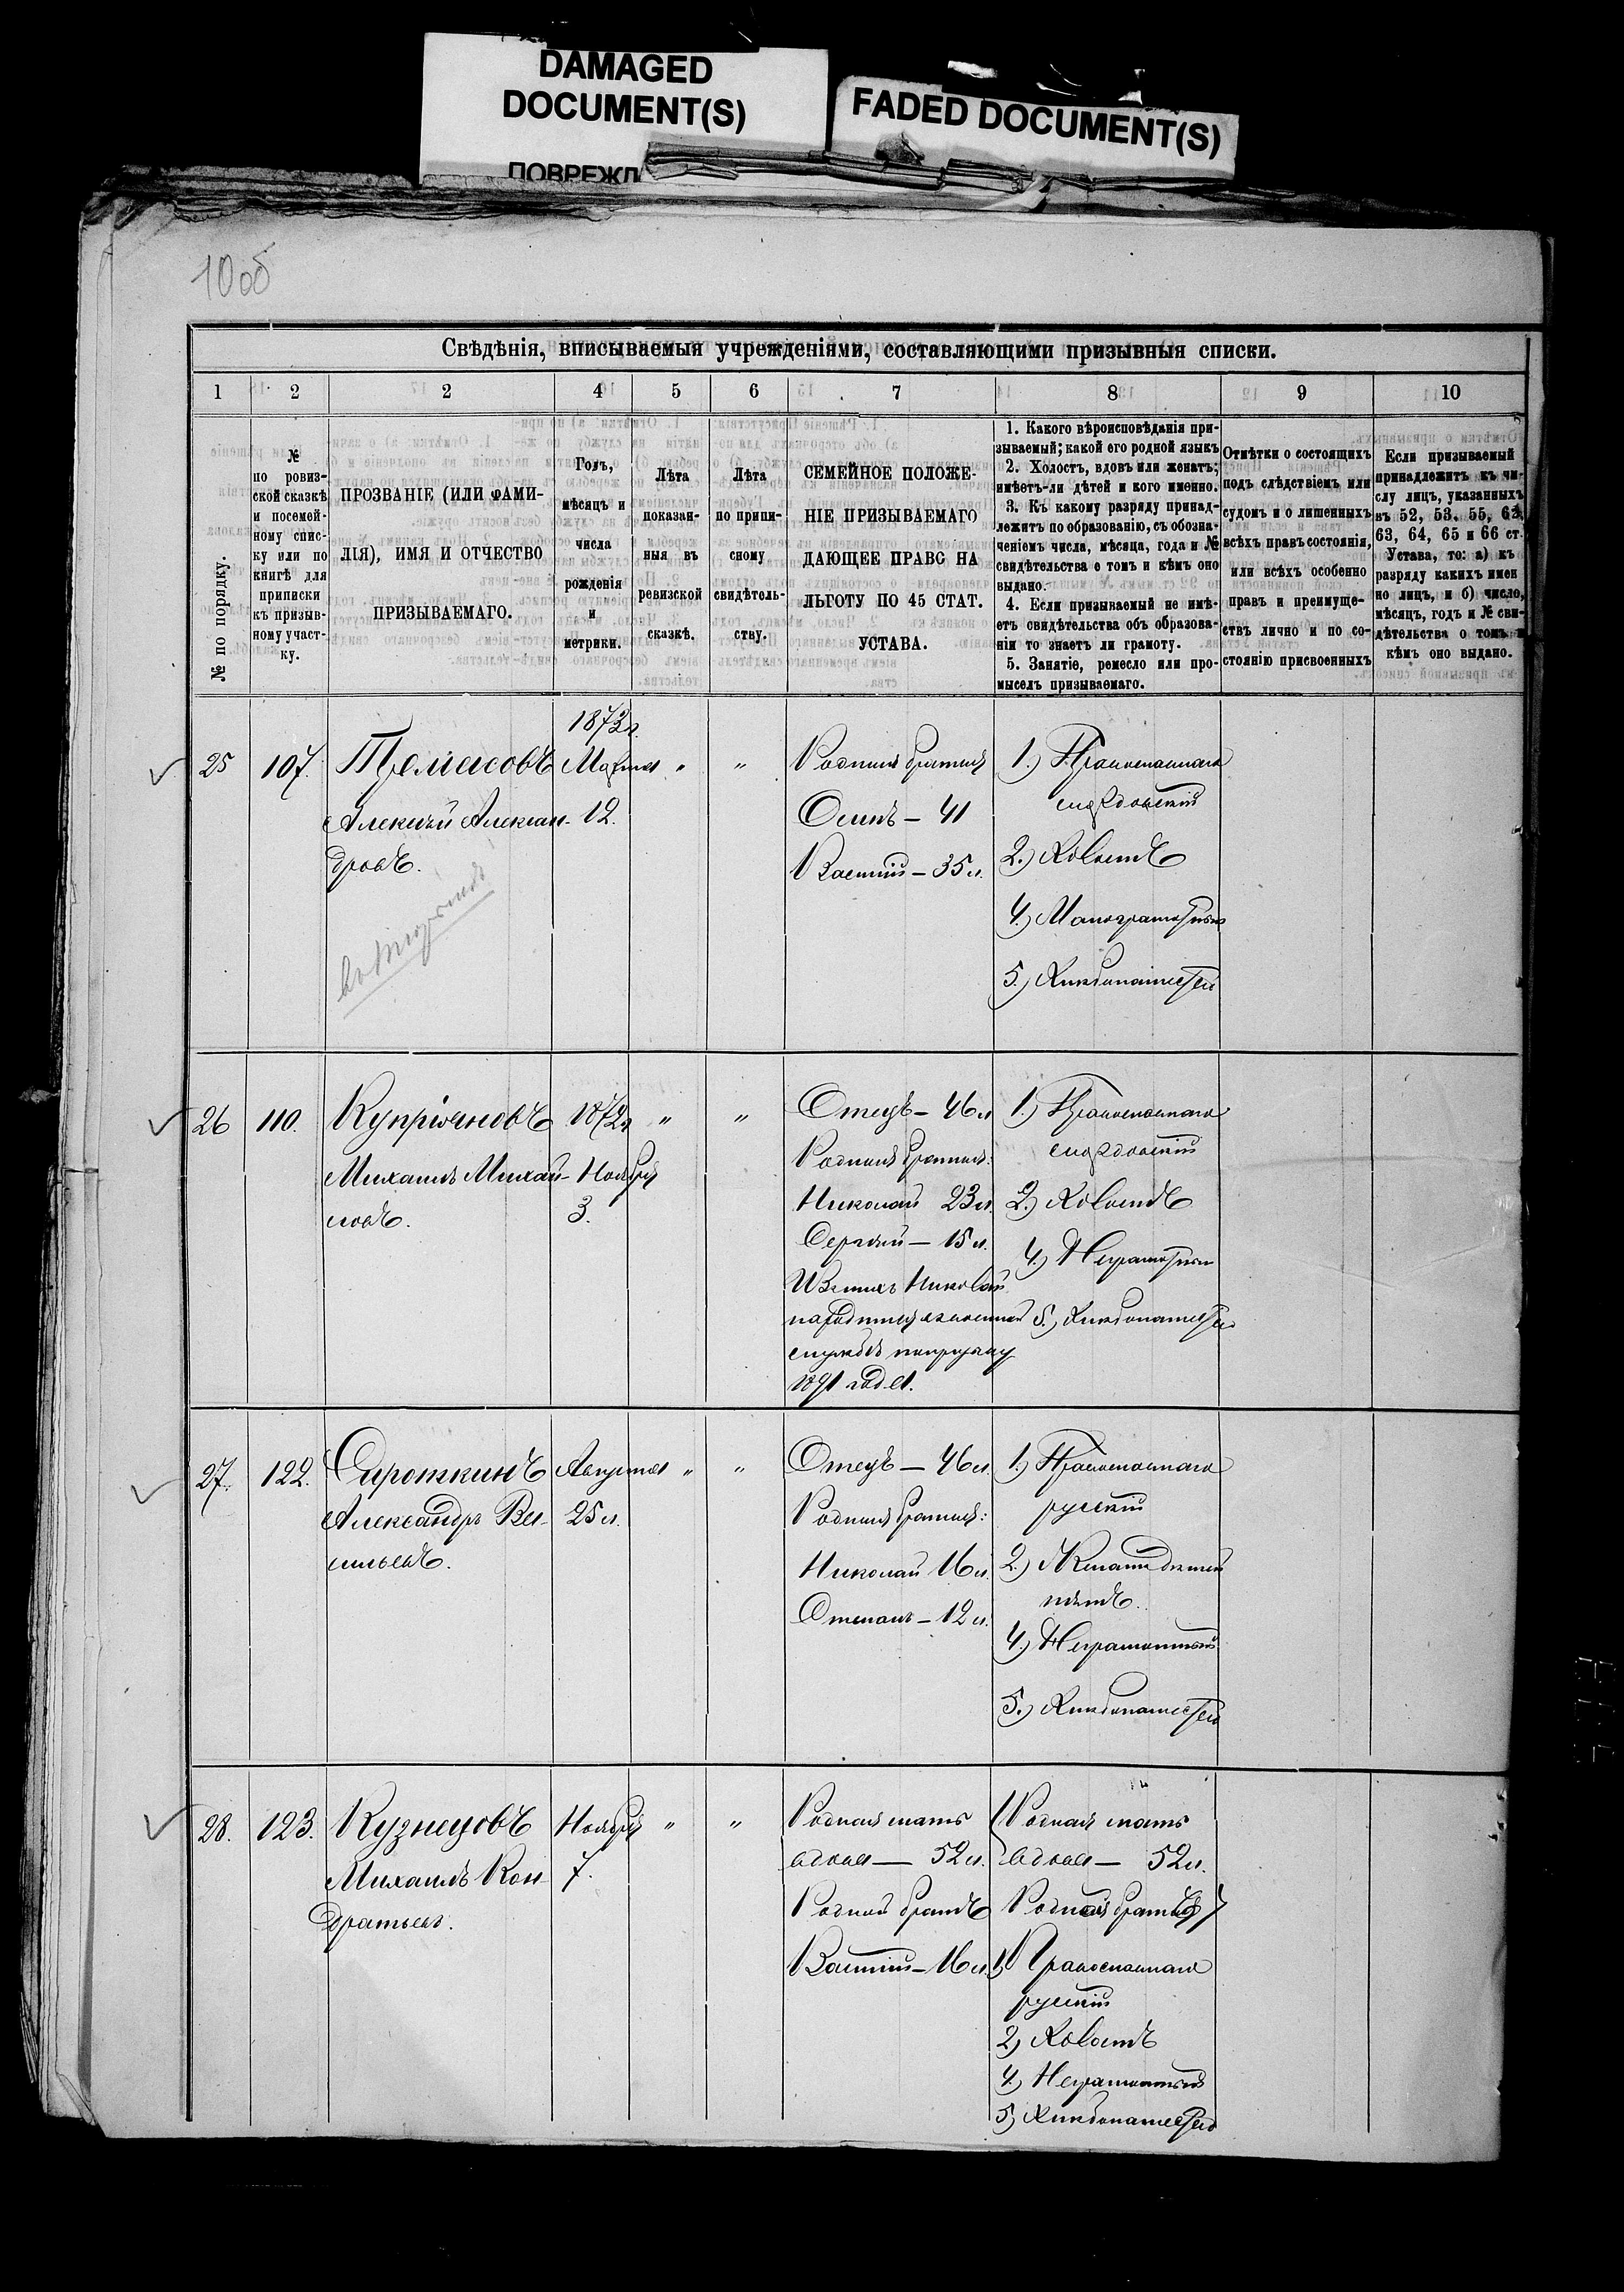 DAMAGED
DOCUMENT(S)
ПОВРЕЖД
FADED DOCUMENT(S)
10об
Свѣдѣнія, вписываемыя учрежденіями, составляющими призывныя списки.
1 2 2 4 5 6 7 8 9 10
№ по порядку.
№
по ровиз-
ской сказкѣ
и посемей-
ному спис-
ку или по
книгѣ для
приписки
къ призыв-
ному участ-
ку.
ПРОЗВАНІЕ (ИЛИ ФАМИ-
ЛІЯ), ИМЯ И ОТЧЕСТВО
ПРИЗЫВАЕМАГО.
Годъ,
мѣсяцъ и
числа
рожденія
и
метрики.
Лѣта
показан-
ныя въ
ревизской
сказкѣ.
Лѣта
по припи-
сному
свидѣтель-
ству.
СЕМЕЙНОЕ ПОЛОЖЕ-
НІЕ ПРИЗЫВАЕМАГО
ДАЮЩЕЕ ПРАВО НА
ЛЬГОТУ ПО 45 СТАТ.
УСТАВА.
1. Какого вѣроисповѣданія при-
зываемый; какой его родной языкъ
2. Холостъ, вдовъ или женатъ;
имѣетъ-ли дѣтей и кого именно.
3. Къ какому разряду принад-
лежитъ по образованію, съ обозна-
ченіемъ числа, мѣсяца, года и №
свидѣтельства о томъ и кѣмъ оно
выдано.
4. Если призываемый не имѣ-
етъ свидѣтельства объ образова-
ніи то знаетъ ли грамоту.
5. Занятіе, ремесло или про-
мыселъ призываемаго.
Отмѣтки о состоящихъ
подъ слѣдствіемъ или
судомъ и о лишенныхъ
всѣхъ правъ состоянія,
или всѣхъ особенно
правъ и преимуще-
ствъ лично и по со-
стоянію присвоенныхъ
Если призываемый
принадлежитъ къ чи-
слу лицъ, указанныхъ
въ 52, 53, 55, 62,
63, 64, 65 и 66 ст.
Устава, то: а) къ
разряду какихъ имен
но лицъ, и б) число,
мѣсяцъ, годъ и № сви-
дѣтельства о томъ и
кѣмъ оно выдано.
25 107.
Алексѣй Алексан-
дровъ.
1872г.
Марта
12.
" "
Родныя братья
Осипъ — 41
Василій — 35 л.
1.) Православнаго
мордовскій
2.) Холостъ
4.) Малограмотный
5.) Хлѣбопашество
26 110.
Купріяновъ
Михаилъ Михай-
ловъ.
1872г
Ноября
3.
" "
Отецъ — 46 л
Родныя братья:
Николай 23 л.
Сергѣй — 15 л.
Изъ нихъ Николай
на дѣйствительной
службѣ по призыву
1891 года.
1.) Православнаго
мордовскій
2.) Холостъ
4.) Неграмотный
5.) Хлѣбопашество
27. 122.
Сироткинъ
Александръ Ва-
сильевъ.
Августа
25
" "
Отецъ — 46 л.
Родныя братья:
Николай 16 л.
Степанъ — 12 л.
1.) Православнаго
русскій
2.) Женатъ дѣтей
нѣтъ.
4.) Неграмотный
5.) Хлѣбопашество
28. 123.
Кузнецовъ
Михаилъ Кон-
дратьевъ.
Ноября
7.
" "
Родная мать
вдова — 52 л.
Родной братъ
Василій — 16 л.
Родная мать
вдова — 52 л.
Родной братъ
1) Православнаго
русскій
2) Холостъ
4.) Неграмотный
5) Хлѣбопашество